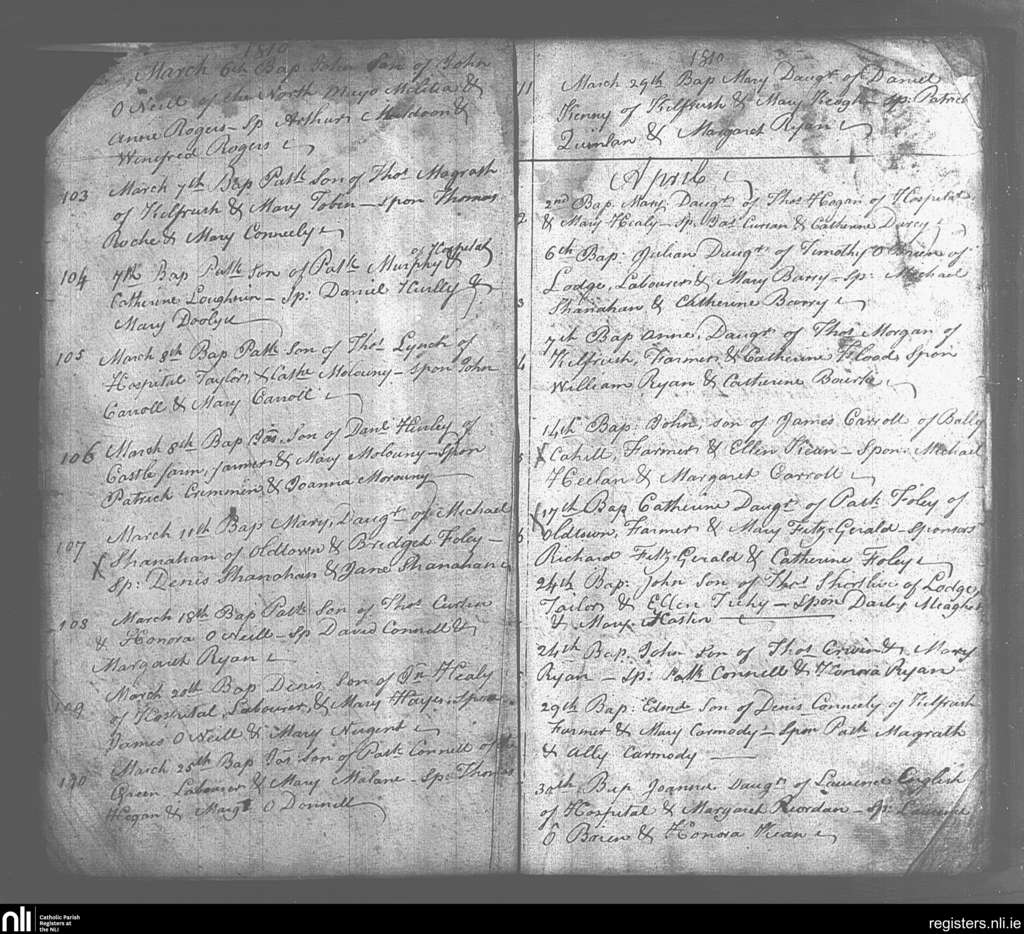 1810
March 6th Bap John Son of John
O Neill of the North Mayo Militia &
Anne Rogers - Sp Arthur Muldoon &
Winefred Rogers
103 March 7th Bap Patk Son of Thos Magrath
of Kilfrush & Mary Tobin - spon Thomas
Roche & Mary Conneely
of Hospital
104 7th Bap Patk Son of Patk Murphy &
Catherine Loughrin - Sp: Daniel Hurley &
Mary Dooly
105 March 8th Bap Patk Son of Thos Lynch of
Hospital Taylor, & Cathe Molouny - Spon John
Carroll & Mary Carroll
106 March 8th Bap Jas, Son of Danl Hurley of
Castle farm, farmer & Mary Molouny - Spon
Patrick Crimmin & Joanna Morouny
107 March 11th Bap Mary, Daugtr of Michael
X Shanahan of Oldtown & Bridget Foley -
Sp: Denis Shanahan & Jane Shanahan
108 March 18th Bap Patk Son of Thos Curtin
& Honora O Neill - Sp David Connell &
Margaret Ryan
109 March 20th Bap Denis, Son of Jn Healy
of Hospital, Labourer, & Mary Hayes, Spon
James O Neill & Mary Nugent
110 March 25th Bap Jas Son of Patk Connell of
Green Labourer & Mary Malane - Sp: Thomas
Hogan & Margt O Donnell
1810
11 March 29th Bap Mary Daugtr of Daniel
Kenny of Kilfrush & Mary Keagh - Sp: Patrick
Quinlan & Margaret Ryan
April
2 2nd Bap. Mary Daugtr of Thos Hogan of Hospital
& Mary Healy - Sp: Jas Curran & Catherine Darcy
6th Bap: Julian Daugtr of Timothy O Brien of
3 Lodge, Labourer & Mary Barry - Sp: Michael
Shanahan & Catherine Barry
7th Bap Anne, Daugtr of Thos Morgan of
4 Kilfrush, Farmer & Catherine Flood Spon
William Ryan & Catherine Bourke
14th Bap: John, son of James Carroll of Bally
5 X Cahill, Farmer & Ellen Kean - Spon: Michael
Heelan & Margaret Carroll
X 17th Bap Catherine Daugtr of Patk Foley of
6 Oldtown, Farmer & Mary Fitz-Gerald - Sponsors
Richard Fitz-Gerald & Catherine Foley
24th Bap: John Son of Thos of Lodge,
Tailor & Ellen - Spon Darby Meagher
& Mary
24th Bap. John Son of Thos Erwin & Mary
Ryan - Sp: Patk Connell & Honora Ryan
29th Bap: Edmd Son of Denis Conneely of Kilfrush
Farmer & Mary Carmody - Spon Patk Magrath
& Ally Carmody
30th Bap Joanna Daugtr of Laurence English
of Hospital & Margaret Riordan - Sp: Laurence
O Brien & Honora Kean
nli
Catholic Parish
Registers at
the NLI
registers.nli.ie